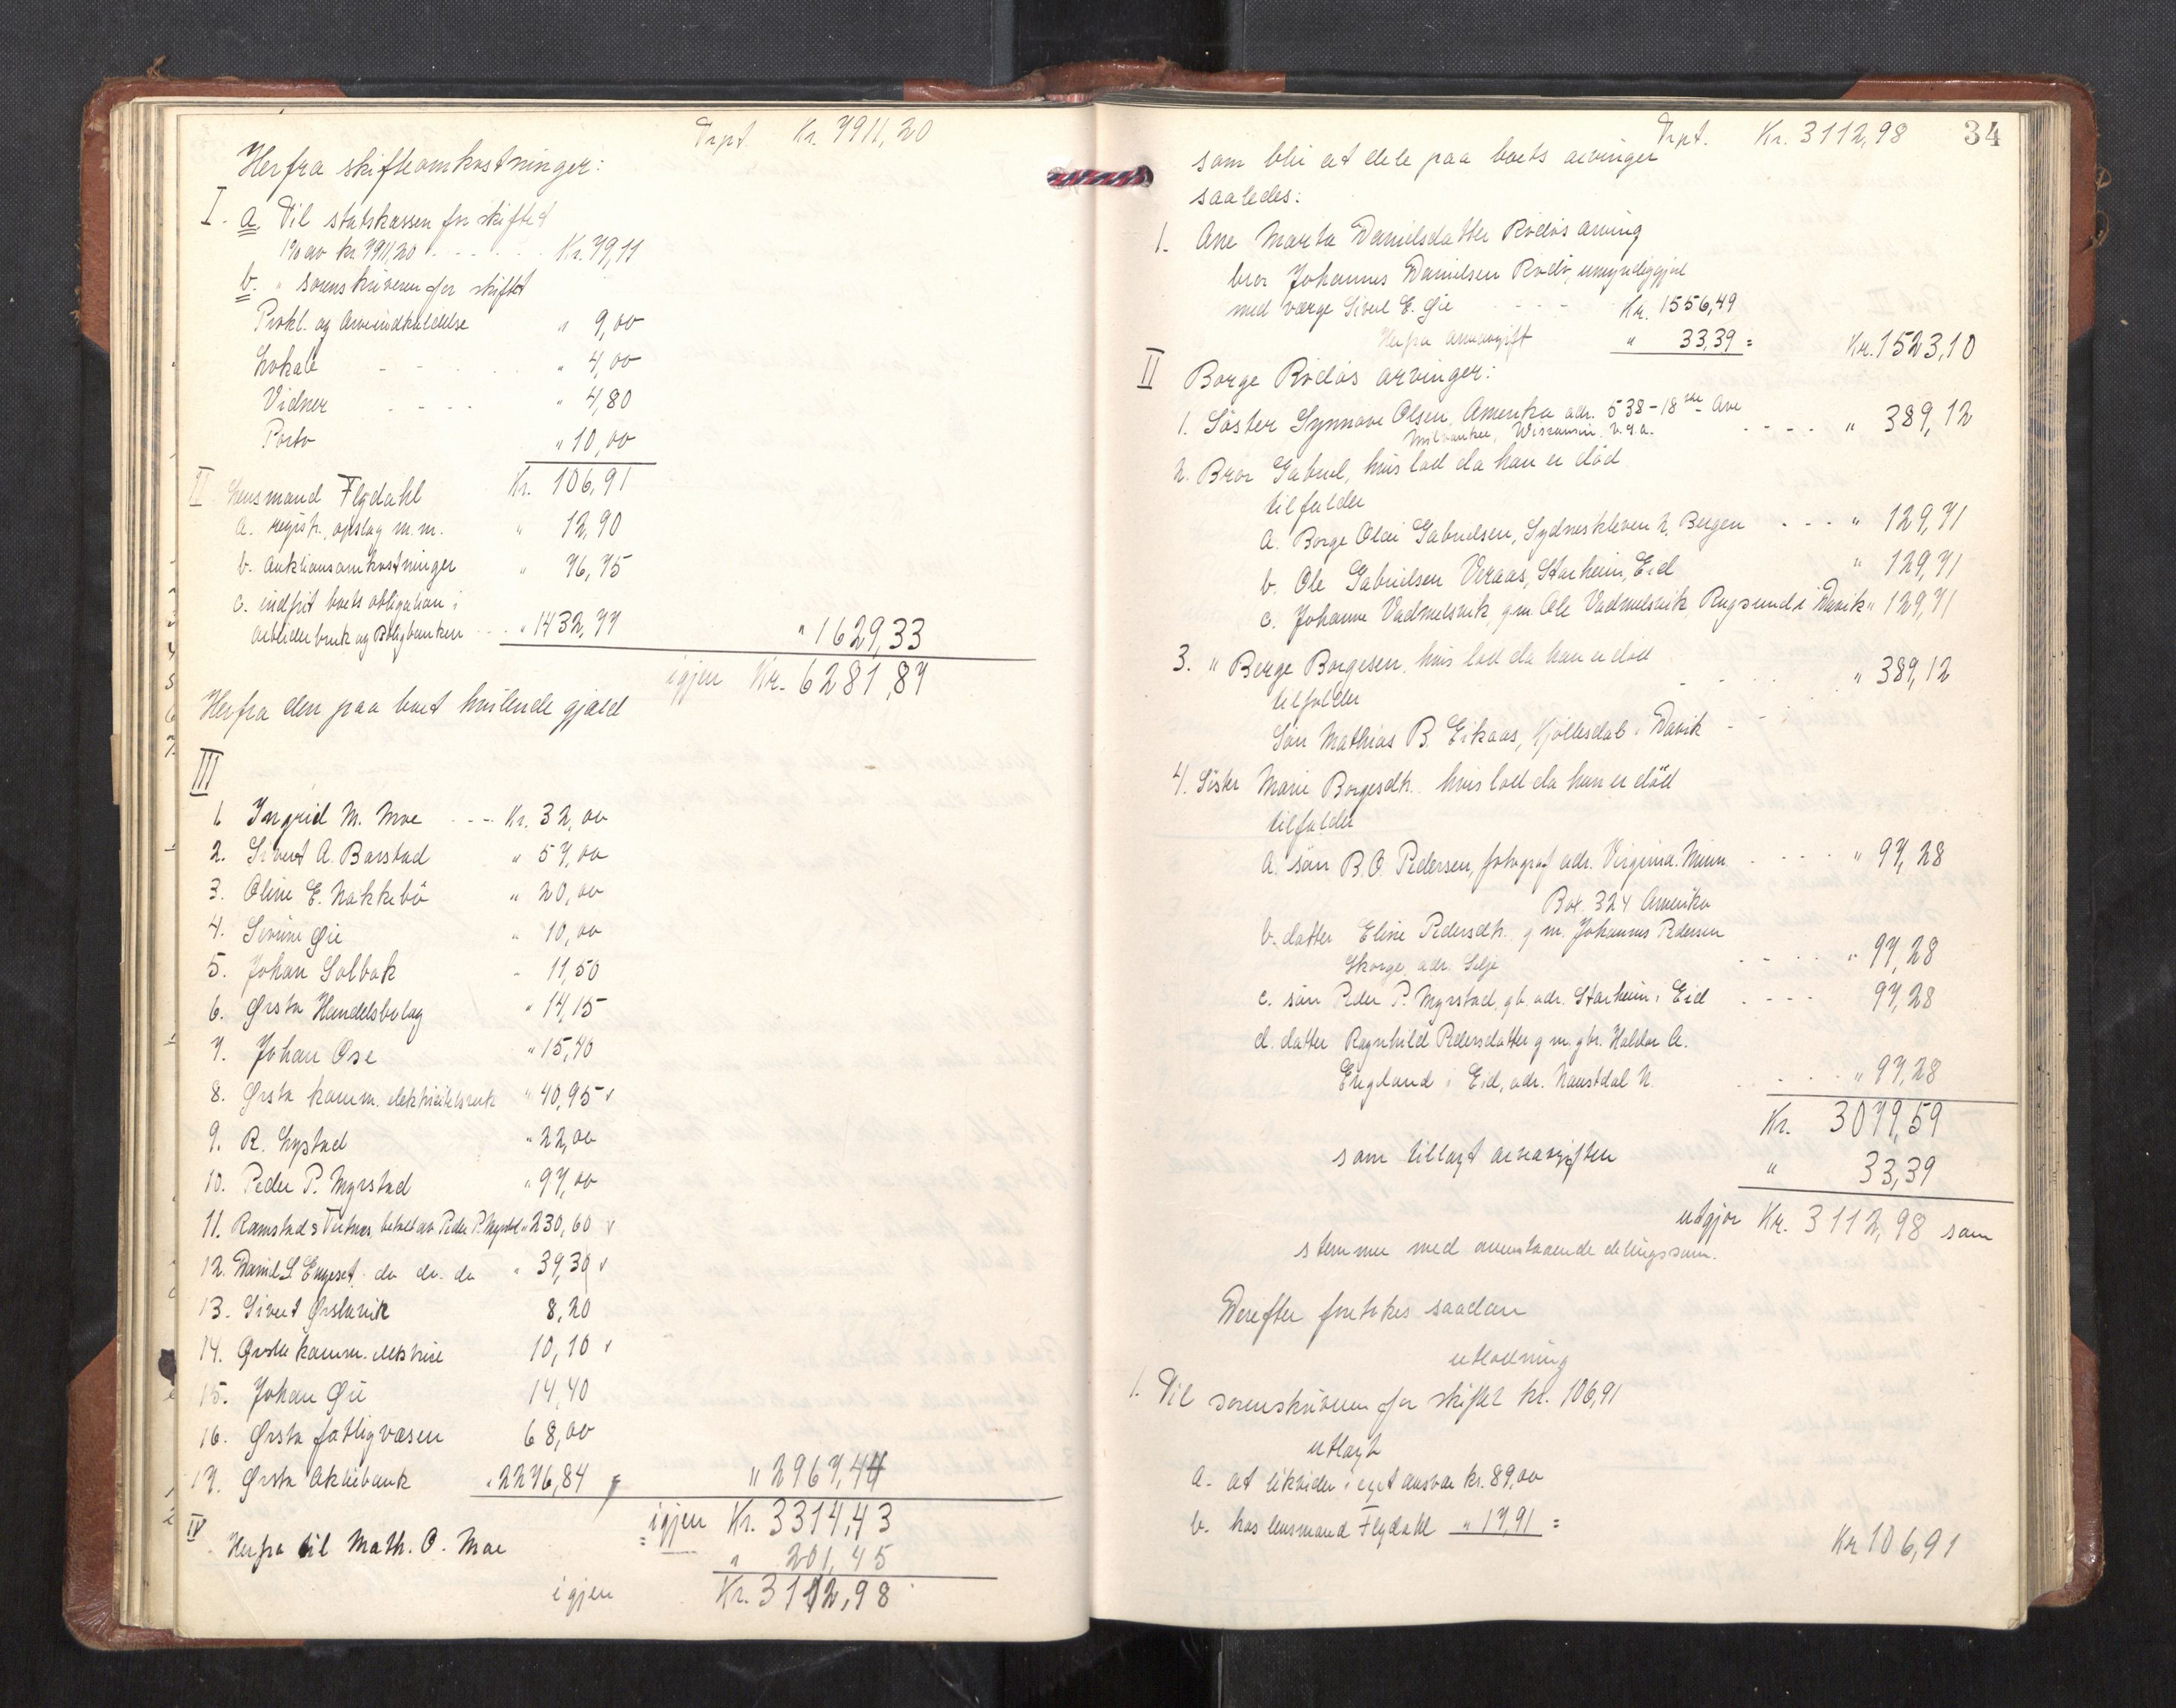 Trpt. Kr. 7911,20
Herfra skifteomkostninger:
I. a. Til statskassen for skiftet
1% av kr 7911,20 - - - - Kr. 79,11
b. " sorenskriveren for skiftet
Prokl. og Arveindkaldelse " 9,00
Lokale - - - " 4,00
Vidner - - - - " 4,80
Porto " 10,00
Kr. 106,91
II Lensmand Flydahl
a. regist., opslag m. m. " 12,90
b. Auktionsomkostninger " 76,75
c. indfrit boets obligation i
Arbeiderbruk og Boligbanken - - " 1432,77 " 1629,33
igjen Kr. 6281,87
Herfra den paa boet hvilende gjæld
III
1 Ingrid M. Moe - - - Kr. 32,00
2. Sivert A. Barstad " 57,00
3. Oline E. Nakkebö " 20,00
4. Severine Øie " 10,00
5. Johan Solbak " 11,50
6. Ørsta Handelsbolag " 14,15
7. Johan Ose " 15,70
8. Ørsta komm. elektricitetsverk " 40,95 v
9. R. Lystad " 22,00
10. Peder P. Myrstad " 97,00
11. Ramstad & Teknes betalt av Peder P. Myrstad " 230,60 v
12. Daniel S Engeset do do. do " 39,30 v
13. Sivert Ørstavik 8,20
14. Ørsta komm. elektric 10,10 v
15. Johan Øie 14,70
16. Ørsta fattigvæsen 68,00
17. Ørsta Aktiebank " 2276,84 " 2967,44
igjen Kr. 3314,43
IV Herfra til Math. O. Moe " 201,45
igjen Kr. 3112,98
Trpt. Kr. 3112,98 34
som blir at dele paa boets arvinger
saaledes:
1. Ane Marta Danielsdatter Rödös arving
bror Johannes Danielsen Rödö, umyndiggjort
med værge Sivert E. Øie - - - Kr. 1556,49
Herfra arveavgift " 33,39 = Kr. 1523,10
II Borge Rödös arvinger:
1. Söster Synnøve Olsen, Amerika adr. 538-18 the Ave
Milvaukee, Wisconsin, U.S.A. - - - - " 389,12
2. Bror Gabriel, hvis lod da han er död
tilfalder
a. Borge Olai Gabrielsen, Sydneskleven 2, Bergen - - - " 129,71
b. Ole Gabrielsen Veraas, Starheim, Eid " 129,71
c. Johanne Vadmelsvik, g.m. Ole Vadmelsvik, Rugsund i Davik " 129,71
3. " Berge Borgesen, hvis lod da han er död
tilfalder - - - " 389,12
Sön Mathias B. Eikaas, Kjöllesdal i Davik - - -
4. Söster Marie Borgesdtr. hvis lod da hun er död
tilfalder
a. sön B.O. Pedersen, fotograf adr. Virginia. Minn - - - - " 97,28
Box. 324 Amerika
b. datter Eline Pedersdtr. g m. Johannes Pedersen
Skorge, adr. Selje - - - - " 97,28
c. sön Peder P. Myrstad, gb. adr. Starheim i Eid - - - - 97,28
d. datter Ragnhild Pedersdatter g m. gbr. Haldor A.
Engeland i Eid, adr. Naustdal N. - - - " 97,28
Kr. 3079,59
som tillagt arveavgiften " 33,39
utgjör Kr. 3112,98 som
stemmer med ovenstaaende delingssum.
Derefter foretokes saadan
utlodning
1. Til sorenskriveren for skiftet kr. 106,91
utlagt
a. at likvidere i eget ansvar kr. 89,00
b. hos lensmand Flydahl " 17,91 = Kr 106,91